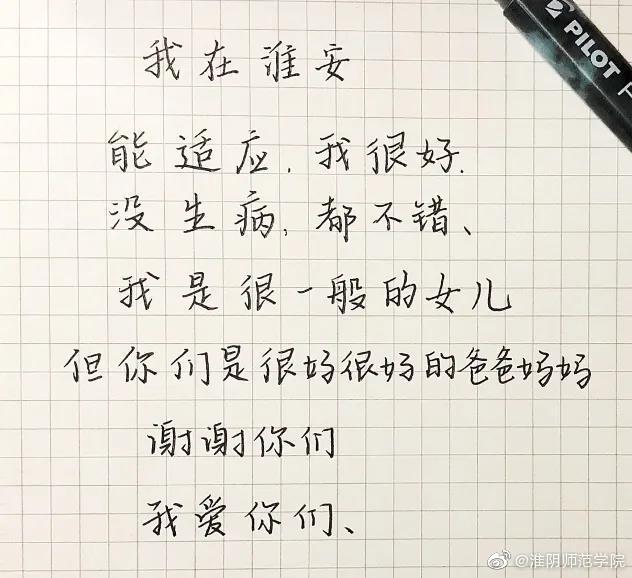 PILOT
我在淮安
能适应,我很好.
没生病,都不错、
我是很一般的女儿
但你们是很好很好的爸爸妈妈
谢谢你们
我爱你们、
@淮阴师范学院